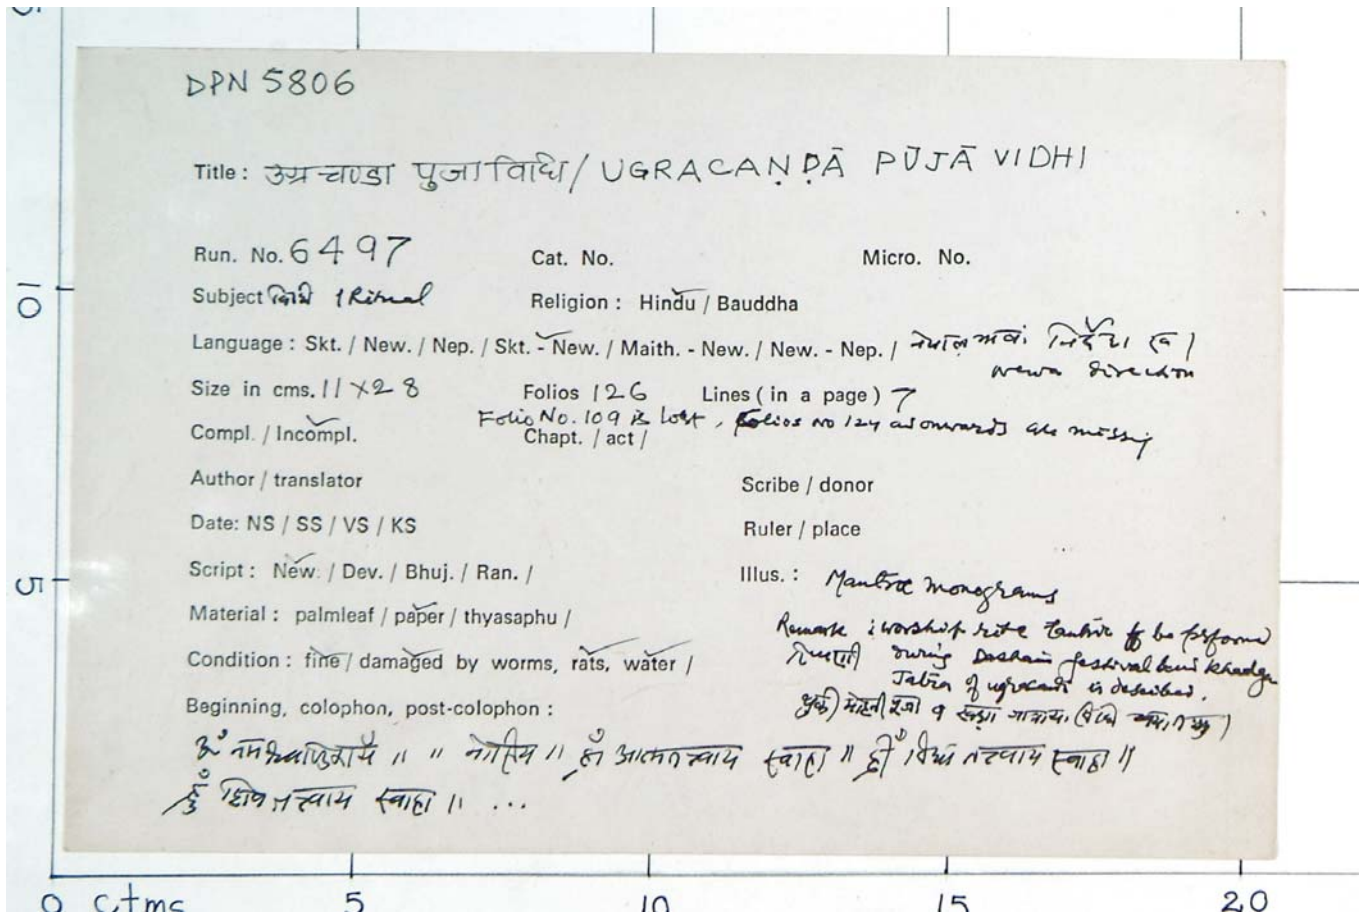 DPN 5806
Title: उग्रचण्डा पुजा विधि / UGRACAṆḌĀ PŪJĀ VIDHI
Run. No. 6497 Cat. No. Micro. No.
Subject विधि / Ritual Religion : Hindu / Bauddha
Language : Skt. / New. / Nep. / Skt. - New. / Maith. - New. / New. - Nep. / नेपाल
newa direction
Size in cms. 11 × 28 Folios 126 Lines ( in a page ) 7
Folio No. 109 is lost, folios no 124 onwards are missing
Compl. / Incompl. Chapt. / act /
Author / translator Scribe / donor
Date: NS / SS / VS / KS Ruler / place
Script : New. / Dev. / Bhuj. / Ran. / Illus. : Mantra monograms
Material : palmleaf / paper / thyasaphu /
Remark : worship rite to be performed
Condition : fine / damaged by worms, rats, water /
during Dashain festival Khadga
Jatra of is described.
Beginning, colophon, post-colophon :
ॐ नमश्चण्डिकायै ॥ ॥ ह्राँ आत्मतत्वाय स्वाहा ॥ ह्रीँ विद्यातत्वाय स्वाहा ॥
ह्रुँ शिवतत्वाय स्वाहा ॥ ...
10
5
0 ctms 5 10 15 20